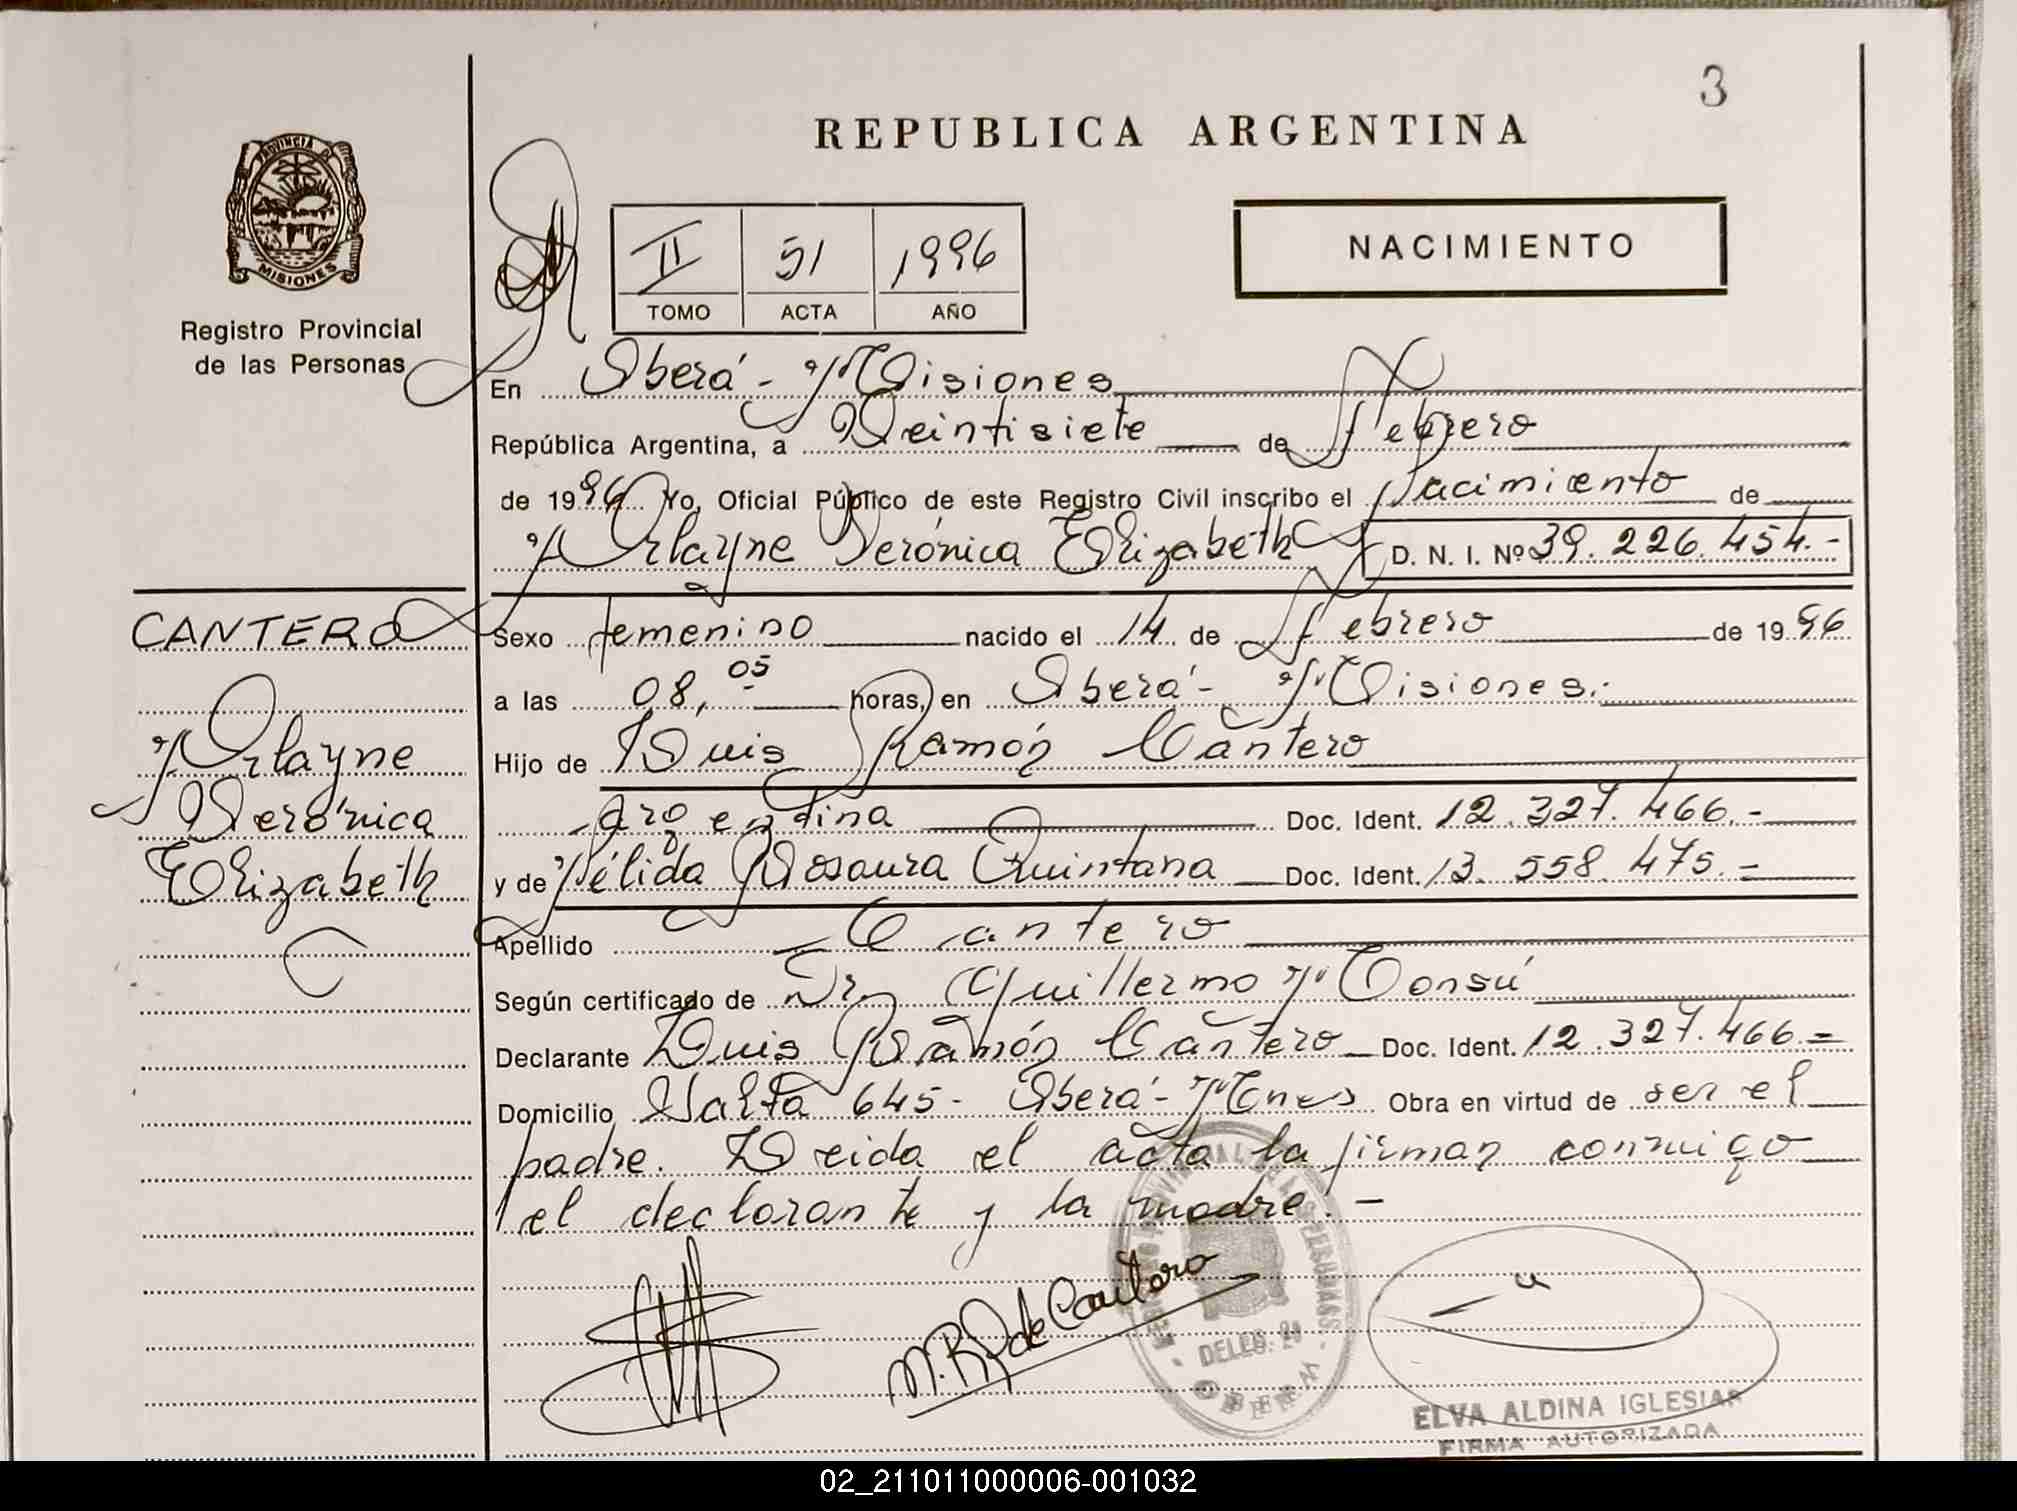 3
REPUBLICA ARGENTINA
PROVINCIA DE
MISIONES
Registro Provincial
de las Personas
II 51 1996
TOMO ACTA AÑO
NACIMIENTO
En Oberá - Misiones
República Argentina, a Veintisiete de Febrero
de 1996 Yo, Oficial Público de este Registro Civil inscribo el Nacimiento de
Verónica Elizabeth D. N. I. Nº 39.226.454.-
CANTERO
Verónica
Elizabeth
Sexo femenino nacido el 14 de Febrero de 1996
a las 08,05 horas, en Oberá - Misiones.-
Hijo de Luis Ramón Cantero
Argentina Doc. Ident. 12.327.466.-
y de Nélida Rosaura Quintana Doc. Ident. 13.558.475.=
Apellido Cantero
Según certificado de Dr. Guillermo Tonsú
Declarante Luis Ramón Cantero Doc. Ident. 12.327.466.=
Domicilio Salta 645 - Oberá - Mnes Obra en virtud de ser el
padre. Leida el acta la firman conmigo
el declarante y la madre.-
de Cantero
DELEG.
OBERA
ELVA ALDINA IGLESIAS
FIRMA AUTORIZADA
02_211011000006-001032